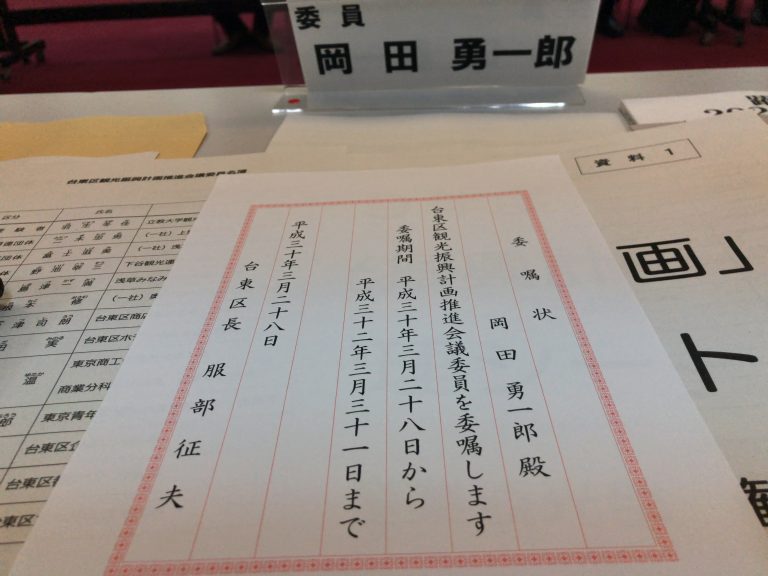 委員
岡田 勇一郎
資料1
委嘱状
岡田 勇一郎 殿
台東区観光振興計画推進会議委員を委嘱します
委嘱期間 平成三十年三月二十八日から
平成三十二年三月三十一日まで
平成三十年三月二十八日
台東区長 服部征夫
台東区観光振興計画推進会議委員名簿
区分
氏名
立教大学観
(一社)上
(一社)浅
下谷観光連
浅草みなみ
(一社)
台東区商店
台東区水
東京商工
商業分科
東京青年
台東区
台東区
台東区
画」
ト
観